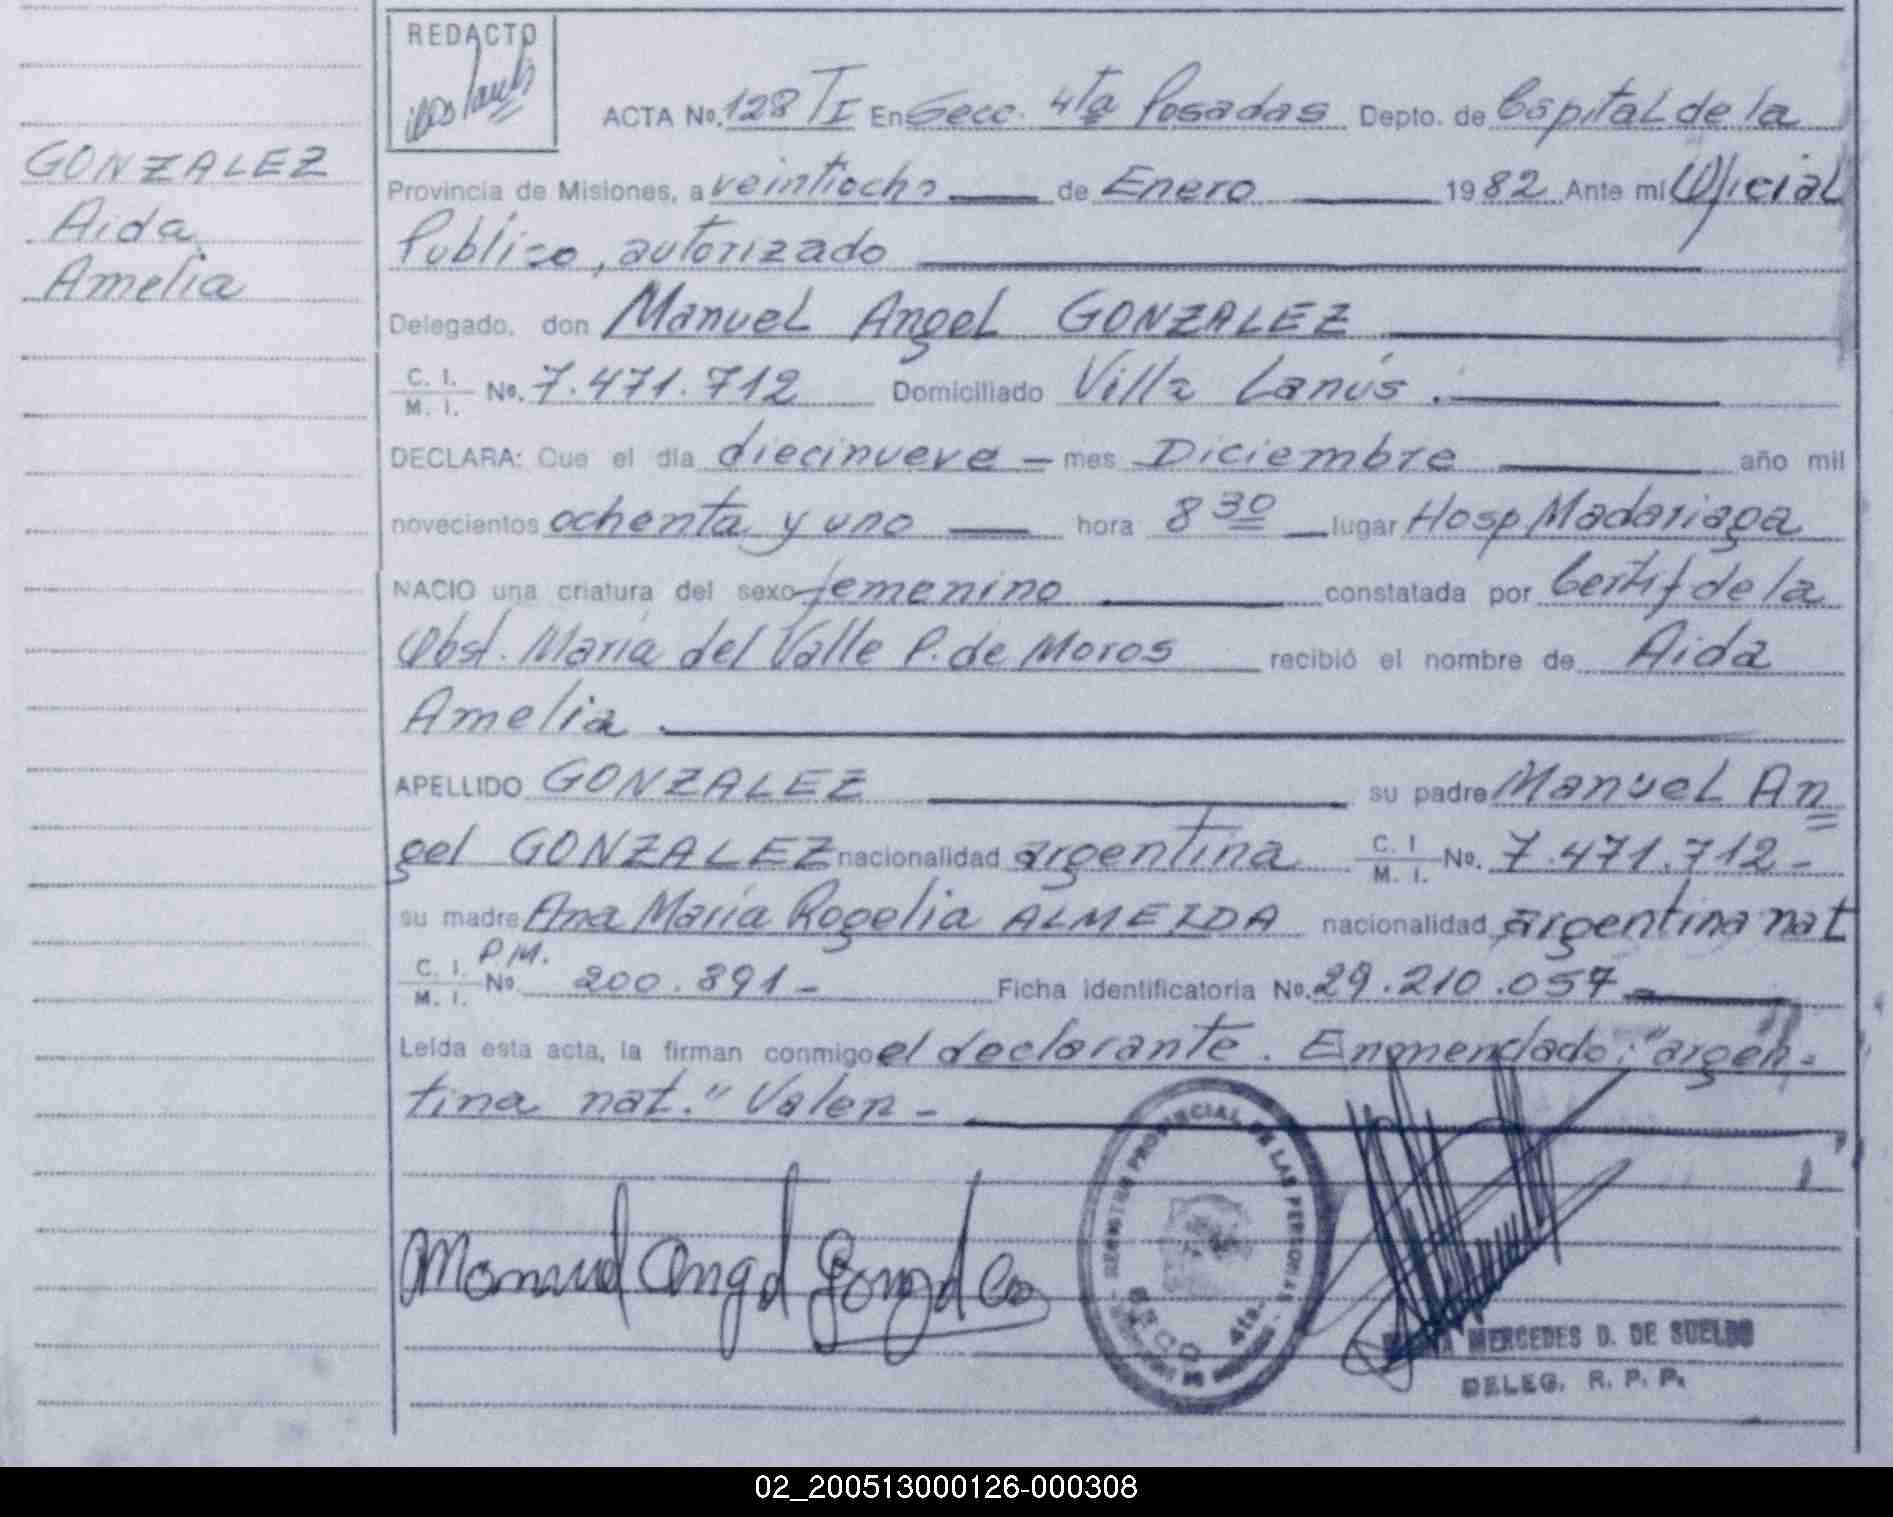 REDACTO
ACTA No. 128 TI En Secc. 4ta Posadas Depto. de Capital de la
GONZALEZ
Aida
Amelia
Provincia de Misiones, a veintiocho de Enero 1982 Ante mi Oficial
Publico, autorizado
Delegado, don Manuel Angel GONZALEZ
C. I. M. I. No. 7.471.712 Domiciliado Villa Lanús.
DECLARA: Que el día diecinueve - mes Diciembre año mil
novecientos ochenta y uno hora 8 30 lugar Hosp Madariaga
NACIO una criatura del sexo femenino constatada por Certif de la
Obst. María del Valle P. de Moros recibió el nombre de Aida
Amelia.
APELLIDO GONZALEZ su padre Manuel An
gel GONZALEZ nacionalidad argentina C. I M. I. No. 7.471.712-
su madre Ana María Rogelia ALMEIDA nacionalidad argentina nat
C. I. M. I. P.M. No 200.891- Ficha identificatoria No. 29.210.057-
Leída esta acta, la firman conmigo el declarante. Enmendado: "argen-
tina nat." Valen-
Manuel Angel Gonzalez
REGISTRO PROVINCIAL DE LAS PERSONAS
SECC 4ta.
MERCEDES D. DE SUELDO
DELEG. R. P. P.
02_200513000126-000308